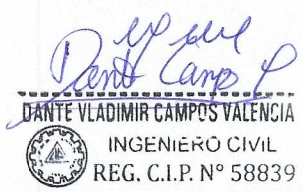 Dante Campos
DANTE VLADIMIR CAMPOS VALENCIA
INGENIERO CIVIL
REG. C.I.P. N° 58839